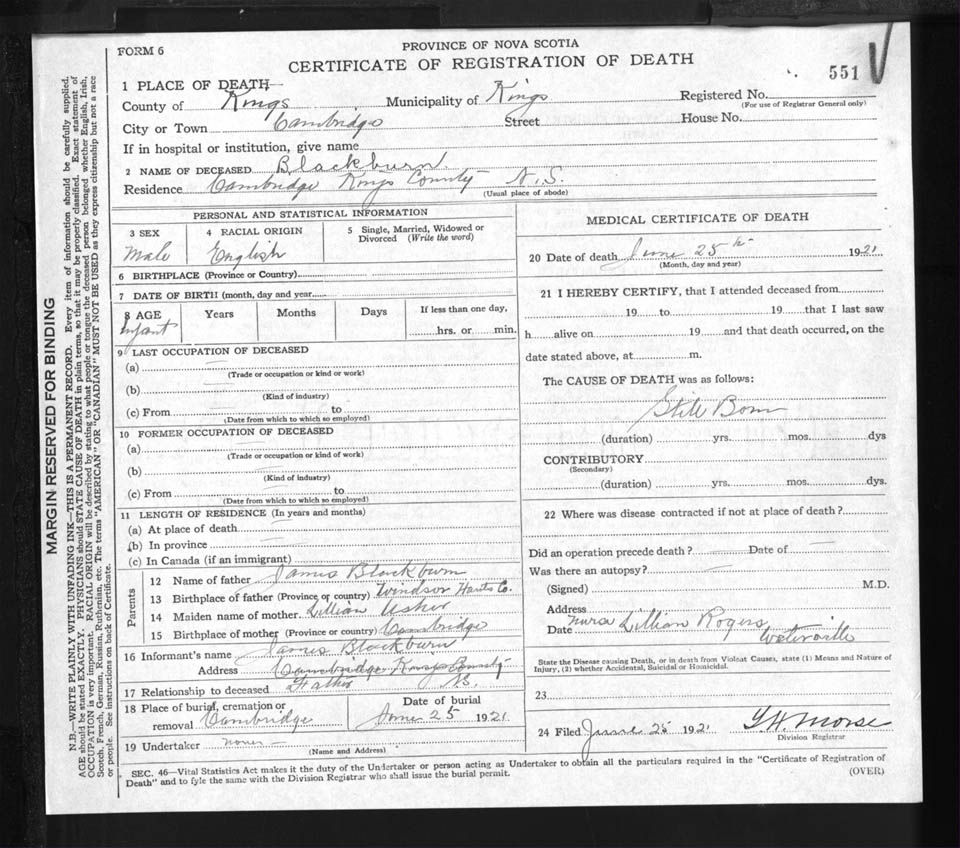 FORM 6
PROVINCE OF NOVA SCOTIA
CERTIFICATE OF REGISTRATION OF DEATH
551
1 PLACE OF DEATH
County of Kings Municipality of Kings Registered No.
(For use of Registrar General only)
City or Town Cambridge Street House No.
If in hospital or institution, give name
2 NAME OF DECEASED Blackburn.
Residence Cambridge Kings County N.S.
(Usual place of abode)
MARGIN RESERVED FOR BINDING
N.B.—WRITE PLAINLY WITH UNFADING INK—THIS IS A PERMANENT RECORD. Every item of information should be carefully supplied.
AGE should be stated EXACTLY. PHYSICIANS should STATE CAUSE OF DEATH in plain terms, so that it may be properly classified. Exact statement of
OCCUPATION is very important. RACIAL ORIGIN will be described by stating to what people or tongue the deceased person belonged whether English, Irish,
Scotch, French, German, Russian, Ruthenian, etc. The terms "AMERICAN" OR "CANADIAN" MUST NOT BE USED as they express citizenship but not a race
or people. See instructions on back of Certificate.
PERSONAL AND STATISTICAL INFORMATION
3 SEX
Male
4 RACIAL ORIGIN
English
5 Single, Married, Widowed or
Divorced (Write the word)
6 BIRTHPLACE (Province or Country)
7 DATE OF BIRTH (month, day and year
8 AGE Years Months Days If less than one day,
Infant
hrs. or min.
9 LAST OCCUPATION OF DECEASED
(a)
(Trade or occupation or kind or work)
(b)
(Kind of industry)
(c) From to
(Date from which to which so employed)
10 FORMER OCCUPATION OF DECEASED
(a)
(Trade or occupation or kind of work)
(b)
(Kind of industry)
(c) From to
(Date from which to which so employed)
11 LENGTH OF RESIDENCE (In years and months)
(a) At place of death
(b) In province
(c) In Canada (if an immigrant)
Parents
12 Name of father James Blackburn
13 Birthplace of father (Province or country) Windsor Hants Co.
14 Maiden name of mother Lillian Usher
15 Birthplace of mother (Province or country) Cambridge
16 Informant's name James Blackburn
Address Cambridge Kings County
N.S.
17 Relationship to deceased Father
18 Place of burial, cremation or
removal Cambridge
Date of burial
June 25 1921
19 Undertaker none
(Name and Address)
MEDICAL CERTIFICATE OF DEATH
20 Date of death June 25th 1921
(Month, day and year)
21 I HEREBY CERTIFY, that I attended deceased from
19 to 19 that I last saw
h alive on 19 and that death occurred, on the
date stated above, at m.
The CAUSE OF DEATH was as follows:
Still Born
(duration) yrs. mos. dys
CONTRIBUTORY
(Secondary)
(duration) yrs. mos. dys.
22 Where was disease contracted if not at place of death?
Did an operation precede death? Date of
Was there an autopsy?
(Signed) M.D.
Address
Date Lillian Rogers
Waterville
State the Disease causing Death, or in death from Violent Causes, state (1) Means and Nature of
Injury, (2) whether Accidental, Suicidal or Homicidal.
23
24 Filed June 25 1921
Division Registrar
SEC. 46—Vital Statistics Act makes it the duty of the Undertaker or person acting as Undertaker to obtain all the particulars required in the "Certificate of Registration of
Death" and to fyle the same with the Division Registrar who shall issue the burial permit.
(OVER)